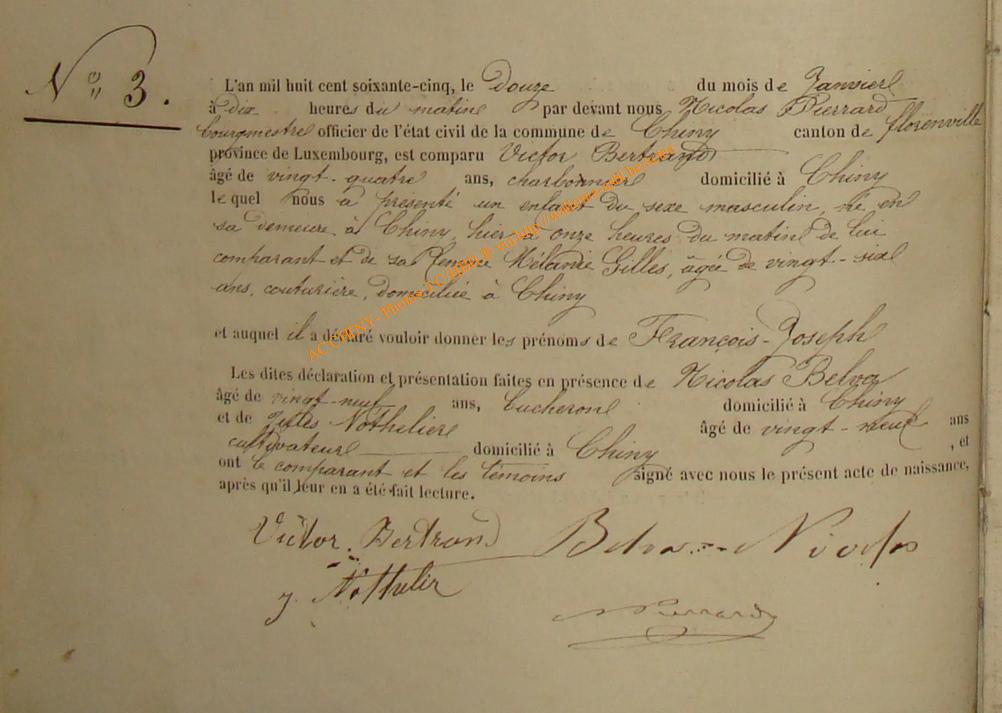 N° 3.
L'an mil huit cent soixante-cinq, le Douze du mois de Janvier
à dix heures du matin par devant nous Nicolas Pierrard
bourgmestre officier de l'état civil de la commune de Chiny canton de florenville
province de Luxembourg, est comparu Victor Bertrand
âgé de vingt-quatre ans, charbonnier domicilié à Chiny
lequel nous a présenté un enfant du sexe masculin, né en
sa demeure à Chiny, hier à onze heures du matin de lui
comparant et de sa femme Mélanie Gilles, âgée de vingt-six
ans, couturière, domiciliée à Chiny
et auquel il a déclaré vouloir donner les prénoms de François-Joseph
Les dites déclaration et présentation faites en présence de Nicolas Belva
âgé de vingt-neuf ans, bucheron domicilié à Chiny
et de Nothelier âgé de vingt-neuf ans
cultivateur domicilié à Chiny , et
ont le comparant et les témoins signé avec nous le présent acte de naissance,
après qu'il leur en a été fait lecture.
Victor Bertrand Belva Nicolas
J. Nothelier
N Pierrard